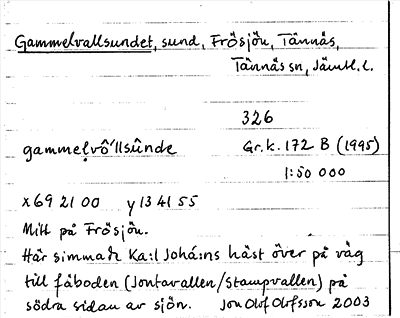 Gammelvallsundet, sund, Frösjön, Tännäs,
Tännäs sn, Jämtl. l.
326
gammeḷvô´llsûnde Gr.k. 172 B (1995)
1:50 000
x 69 21 00 y 13 41 55
Mitt på Frösjön.
Här simmade Ka:l Johá:ns häst över på väg
till fäboden (Jontavallen/Stampvallen) på
södra sidan av sjön. Jon Olof Olofsson 2003